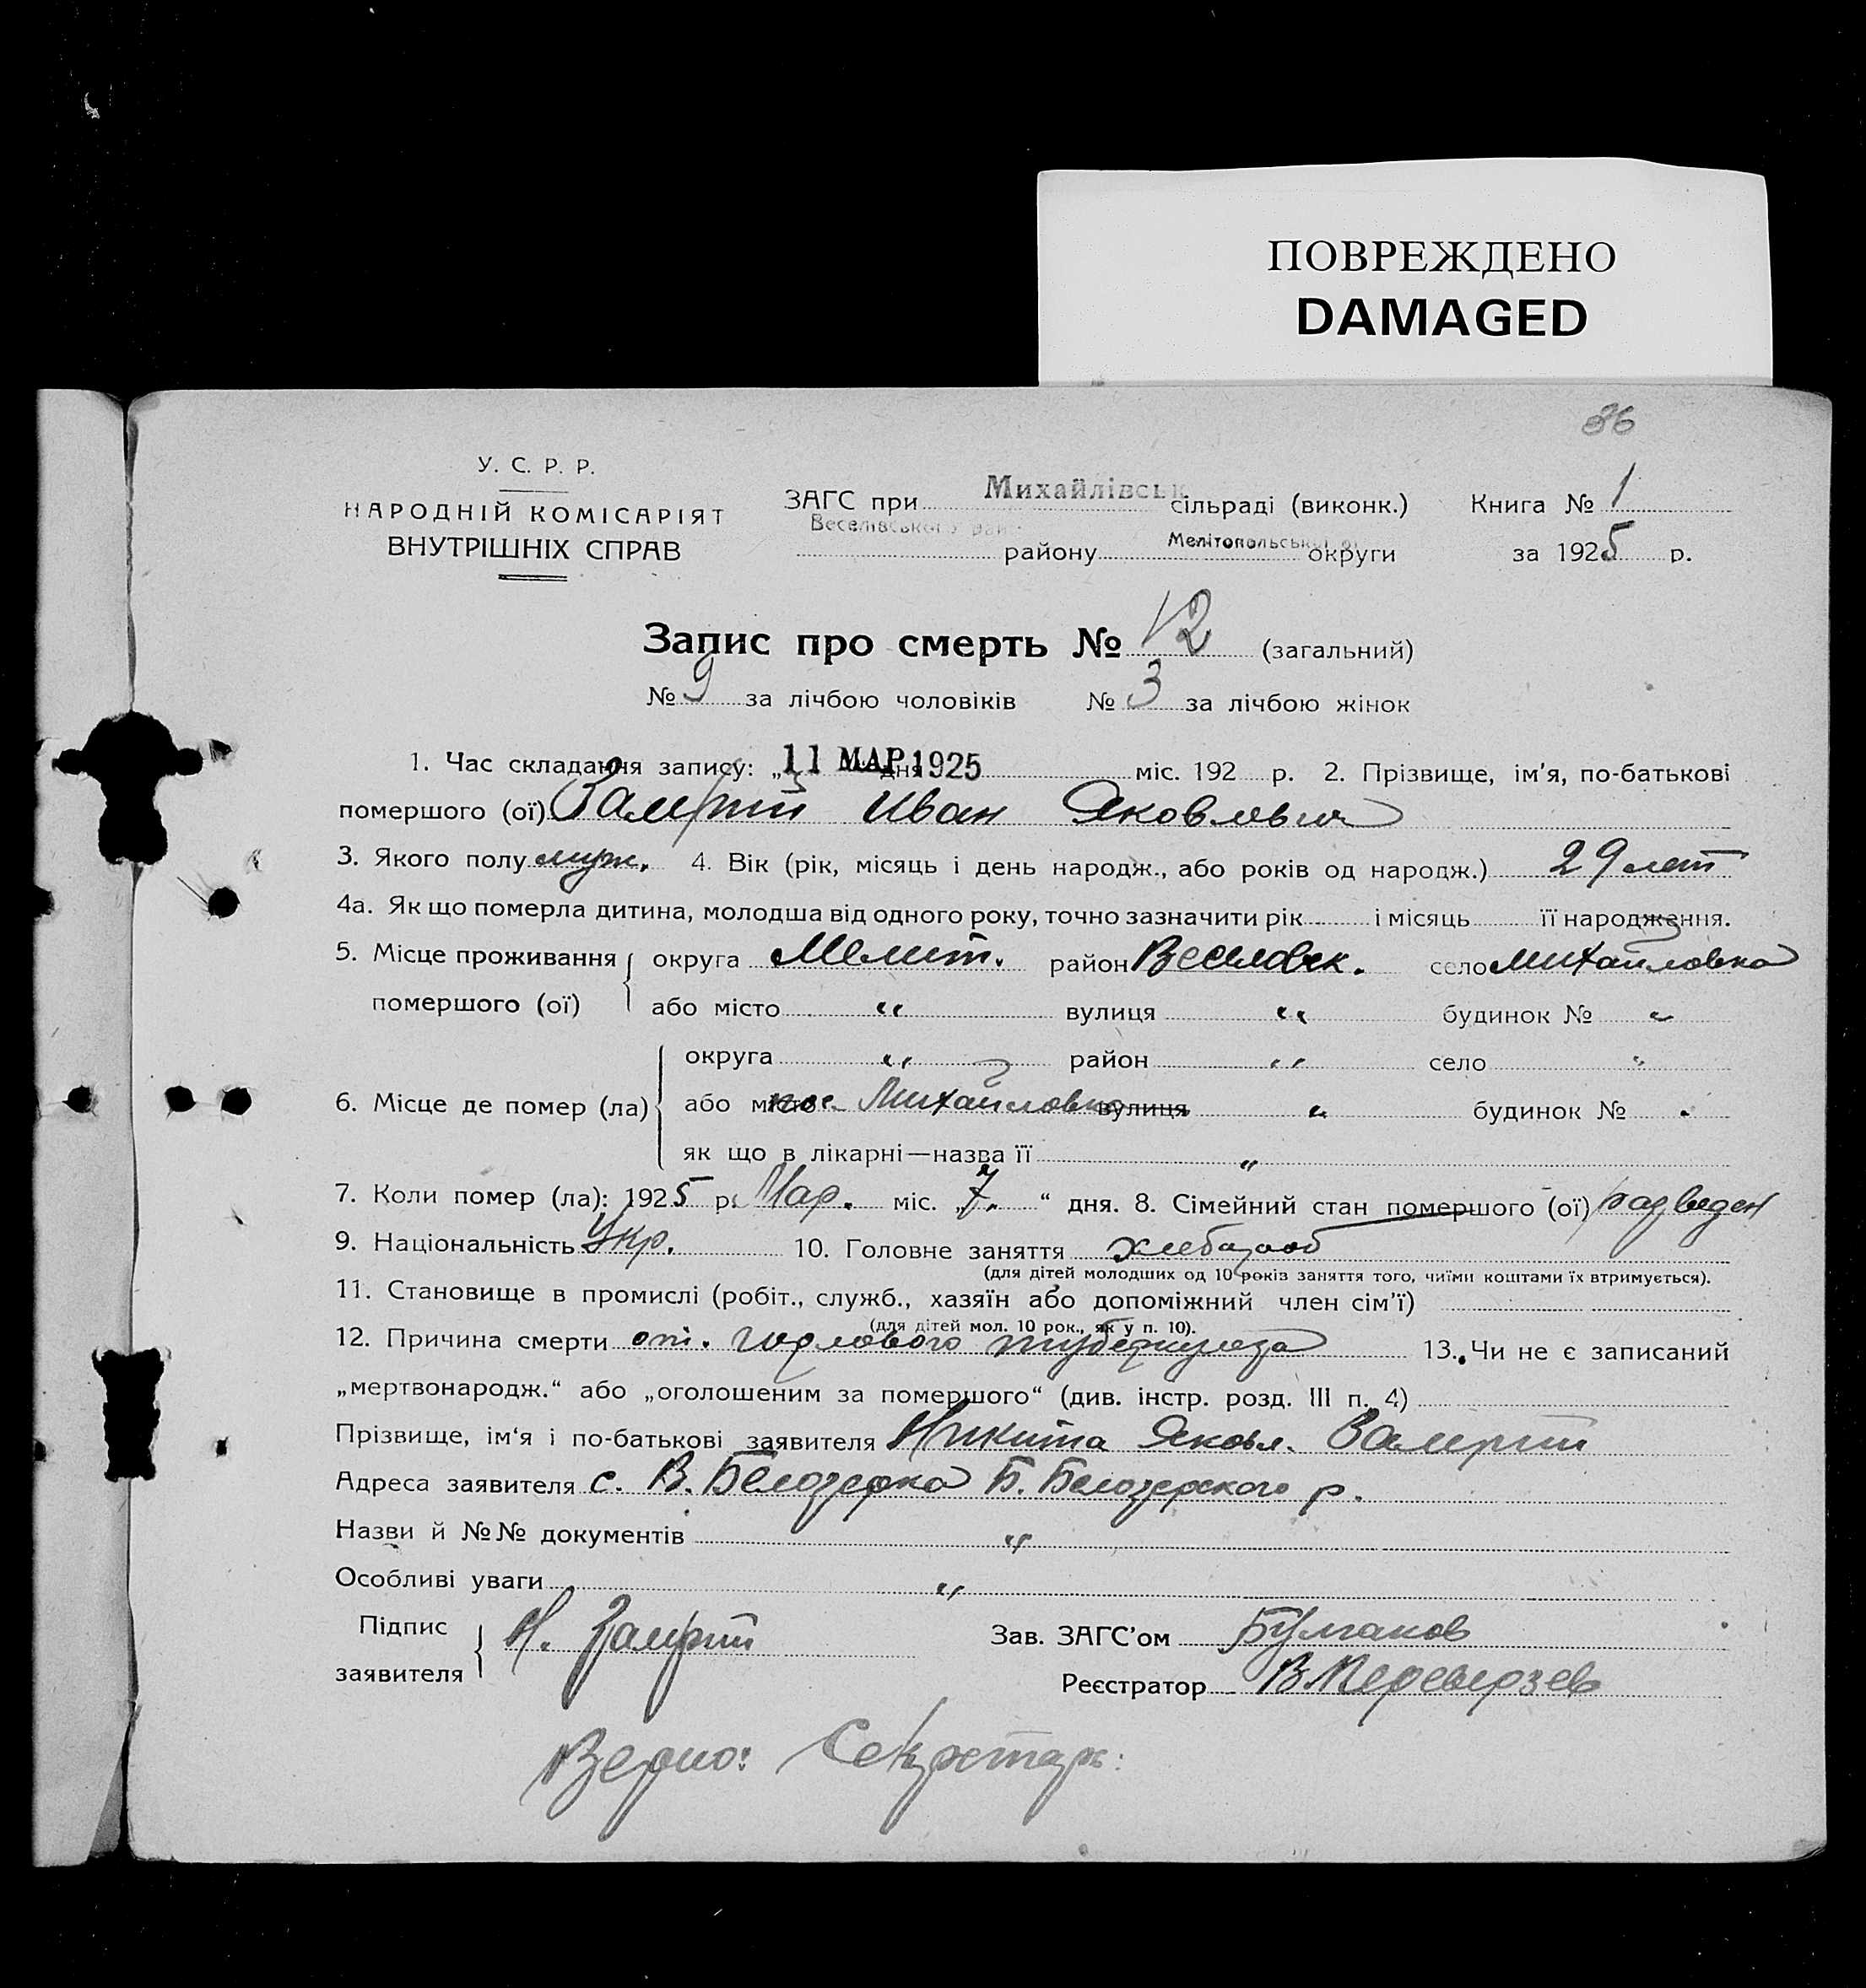 ПОВРЕЖДЕНО
DAMAGED
86
У. С. Р. Р.
НАРОДНІЙ КОМІСАРІЯТ
ВНУТРІШНІХ СПРАВ
ЗАГС при Михайлівськ сільраді (виконк.)
Веселівського рай району Мелітопольської округи
Книга № 1
за 1925 р.
Запис про смерть № 12 (загальний)
№ 9 за лічбою чоловіків № 3 за лічбою жінок
1. Час складання запису: „11 МАР 1925 дня міс. 192 р. 2. Прізвище, ім'я, по-батькові
помершого (ої) Замрій Иван Яковлевич
3. Якого полу муж. 4. Вік (рік, місяць і день народж., або років од народж.) 29 лет
4а. Як що померла дитина, молодша від одного року, точно зазначити рік і місяць її народження.
5. Місце проживання помершого (ої) округа Мелит. район Веселовск. село Михайловка
або місто " вулиця " будинок № "
6. Місце де помер (ла) округа " район " село "
або місто пос. Михайловка вулиця " будинок № "
як що в лікарні—назва її "
7. Коли помер (ла): 1925 р. Мар. міс. „7." дня. 8. Сімейний стан помершого (ої) разведен
9. Національність Укр. 10. Головне заняття хлебароб
(для дітей молодших од 10 років заняття того, чиїми коштами їх втримується).
11. Становище в промислі (робіт., служб., хазяїн або допоміжний член сім'ї)
(для дітей мол. 10 рок., як у п. 10).
12. Причина смерти от. горлового туберкулеза 13. Чи не є записаний
„мертвонародж." або „оголошеним за помершого" (див. інстр. розд. III п. 4)
Прізвище, ім'я і по-батькові заявителя Никита Яковл. Замрий
Адреса заявителя с. В. Белозерка Б. Белозерского р.
Назви й №№ документів "
Особливі уваги "
Підпис заявителя Н. Замрий
Зав. ЗАГС'ом Булгаков
Реєстратор В Переверзев
Верно: Секретарь: